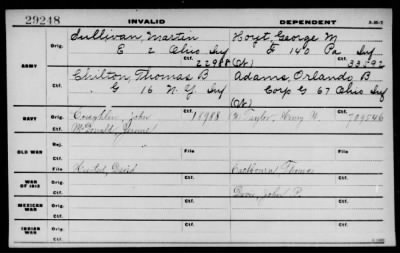 29248 INVALID DEPENDENT 3-557
Sullivan, Martin Hoyt, George M
Orig. E 2 Ohio Inf F 140 Pa Inf
Ctf. 22988 (Ct) 33592
ARMY
Chilton, Thomas B Adams, Orlando B
Orig. G 16 N.Y. Inf Corp G 67 Ohio Inf
Ctf. (Ct)
NAVY Orig. Coughlin, John 18988 W. Taylor, Henry W. 709546
Ctf. McDonald,
OLD WAR Rej.
Ctf. File File
WAR OF 1812 Orig. David Thomas
Ctf. Davis, John P.
MEXICAN WAR Orig.
Ctf. Ctf.
INDIAN WAR Orig.
Ctf. Ctf.